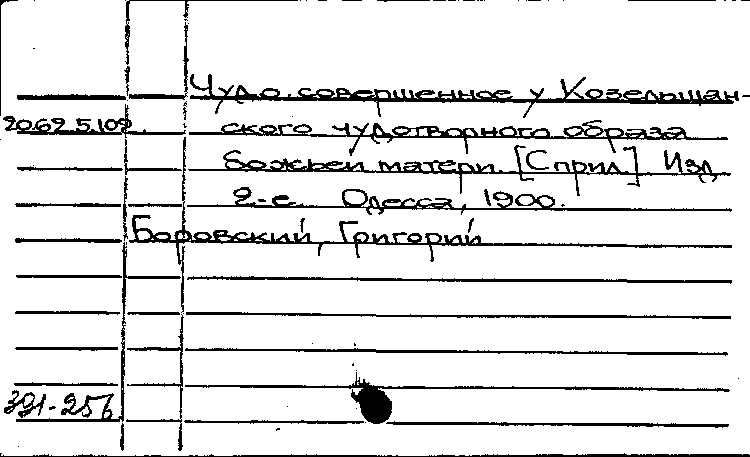 Чудо, совершенное у Козельщан-
2062.5.102. ского чудотворного образа
божьей матери. [С прил.] Изд.
2-е. Одесса, 1900.
Боровский, Григорий
391-256